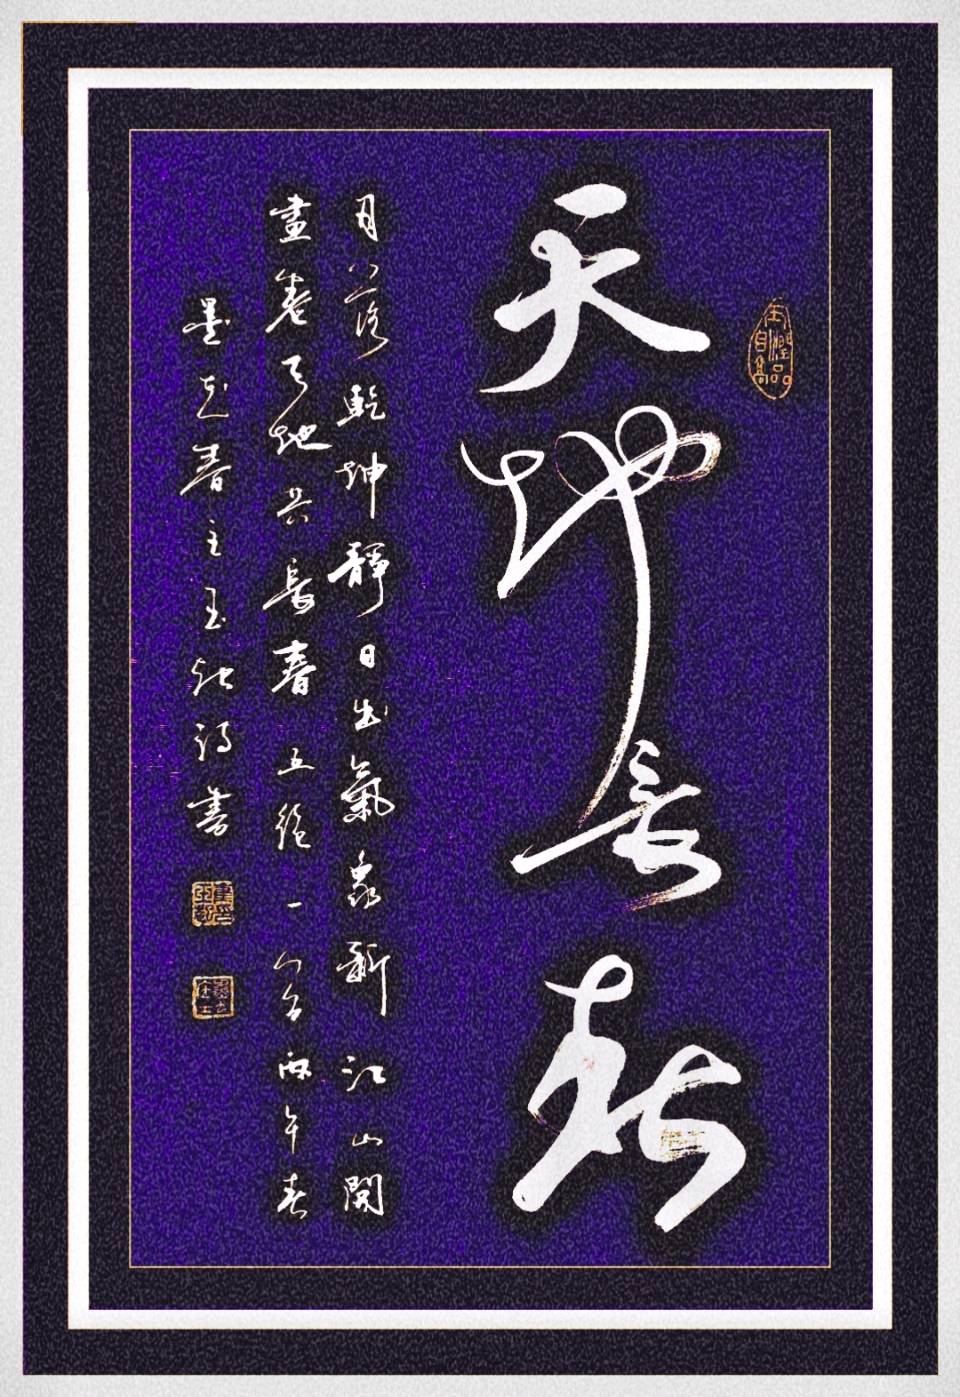 天地長春
月落乾坤靜日出氣象新江山開
畫卷天地共長春五絕一首丙午春
墨 春主 書